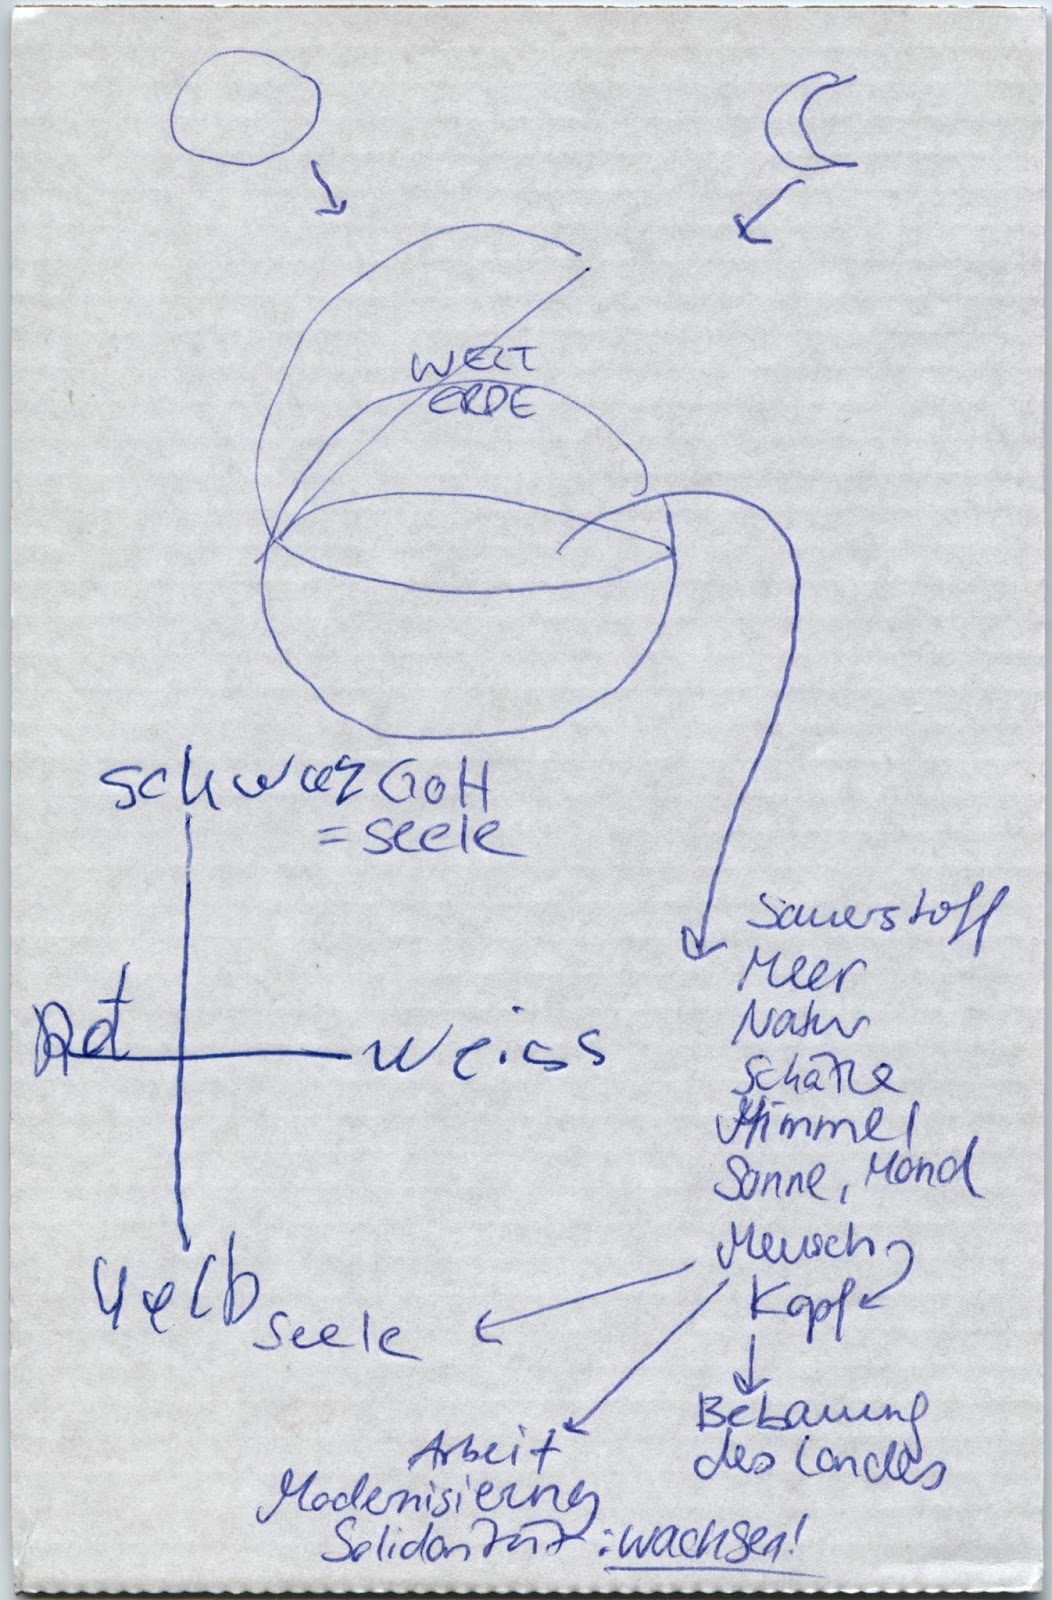 WELT
ERDE
schwarz Gott
= seele
Rot
weiss
gelb
seele
Sauerstoff
Meer
Natur
Schätze
Himmel
Sonne, Mond
Mensch
Kopf
Bebauung
des Landes
Arbeit
Modernisierung
Solidarität : wachsen!